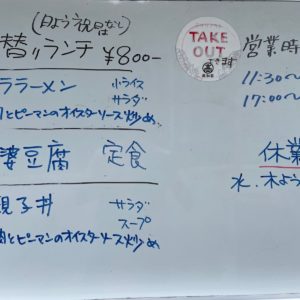 (日よう祝日はなし)
替りランチ ¥800-
ラーメン 小ライス
サラダ
とピーマンのオイスターソース炒め
婆豆腐 定食
親子丼 サラダ
スープ
肉とピーマンのオイスターソース炒め
TAKE
OUT
できます
営業時
11:30~
17:00~
休業
水.木よう